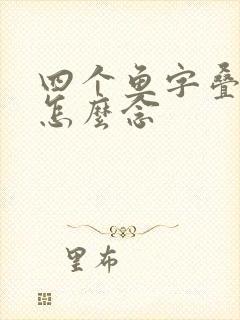 四个鱼字叠
怎麽念
里布